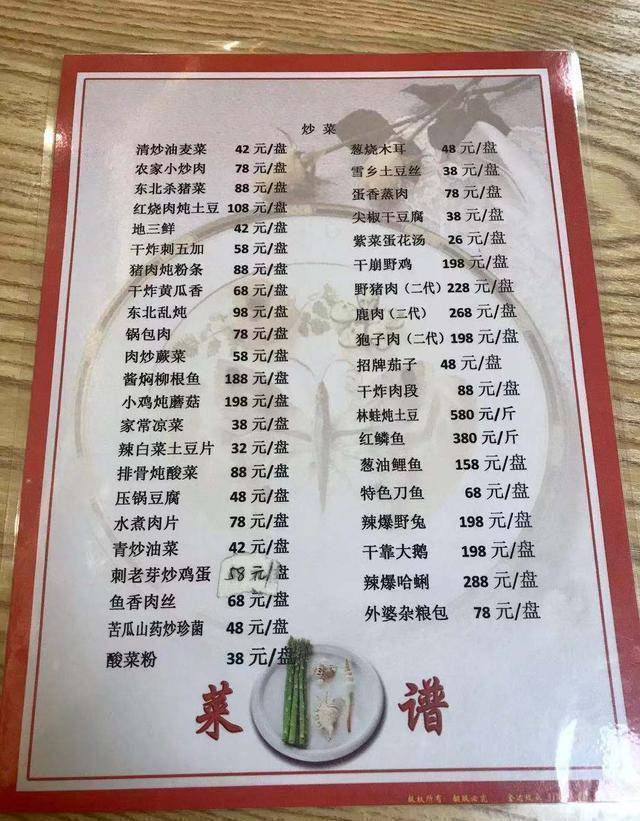 炒菜
清炒油麦菜 42 元/盘
农家小炒肉 78 元/盘
东北杀猪菜 88 元/盘
红烧肉炖土豆 108 元/盘
地三鲜 42 元/盘
干炸刺五加 58 元/盘
猪肉炖粉条 88 元/盘
干炸黄瓜香 68 元/盘
东北乱炖 98 元/盘
锅包肉 78 元/盘
肉炒蕨菜 58 元/盘
酱焖柳根鱼 188 元/盘
小鸡炖蘑菇 198 元/盘
家常凉菜 38 元/盘
辣白菜土豆片 32 元/盘
排骨炖酸菜 88 元/盘
压锅豆腐 48 元/盘
水煮肉片 78 元/盘
青炒油菜 42 元/盘
刺老芽炒鸡蛋 58 元/盘
鱼香肉丝 68 元/盘
苦瓜山药炒珍菌 48 元/盘
酸菜粉 38 元/盘
葱烧木耳 48 元/盘
雪乡土豆丝 38 元/盘
蛋香蒸肉 78 元/盘
尖椒干豆腐 38 元/盘
紫菜蛋花汤 26 元/盘
干崩野鸡 198 元/盘
野猪肉（二代）228 元/盘
鹿肉（二代） 268 元/盘
狍子肉（二代）198 元/盘
招牌茄子 48 元/盘
干炸肉段 88 元/盘
林蛙炖土豆 580 元/斤
红鳞鱼 380 元/斤
葱油鲤鱼 158 元/盘
特色刀鱼 68 元/盘
辣爆野兔 198 元/盘
干靠大鹅 198 元/盘
辣爆哈蜊 288 元/盘
外婆杂粮包 78 元/盘
菜谱
版权所有：翻版必究